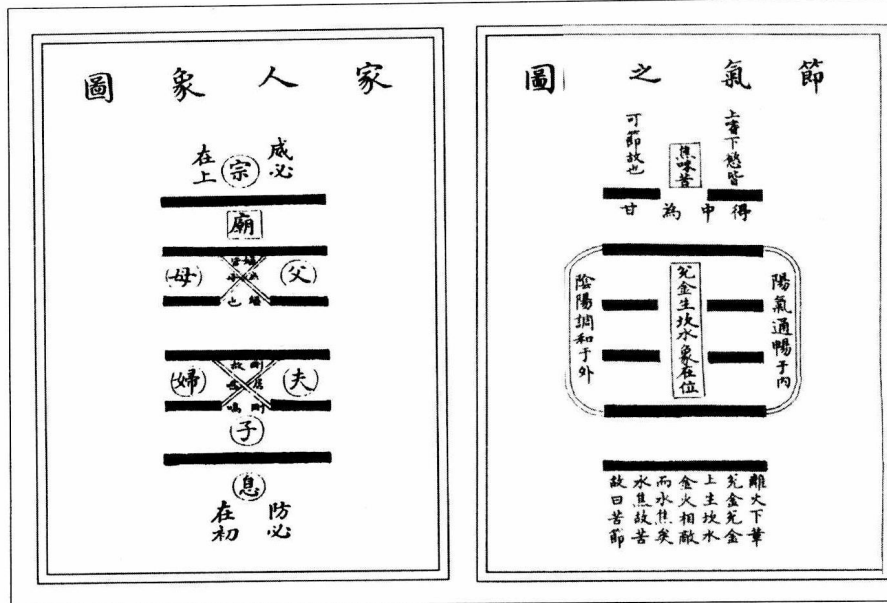 節氣之圖
上嗜下慾皆
可節故也
焦味苦
得中為甘
陽氣通暢于內
兌金生坎水象在位
陰陽調和于外
離火下革
兌金兌金
上生坎水
金火相敵
而水焦矣
水焦故苦
故曰苦節
家人象圖
威必
在上
宗
廟
父
母
夫
婦
子
息
防必
在初